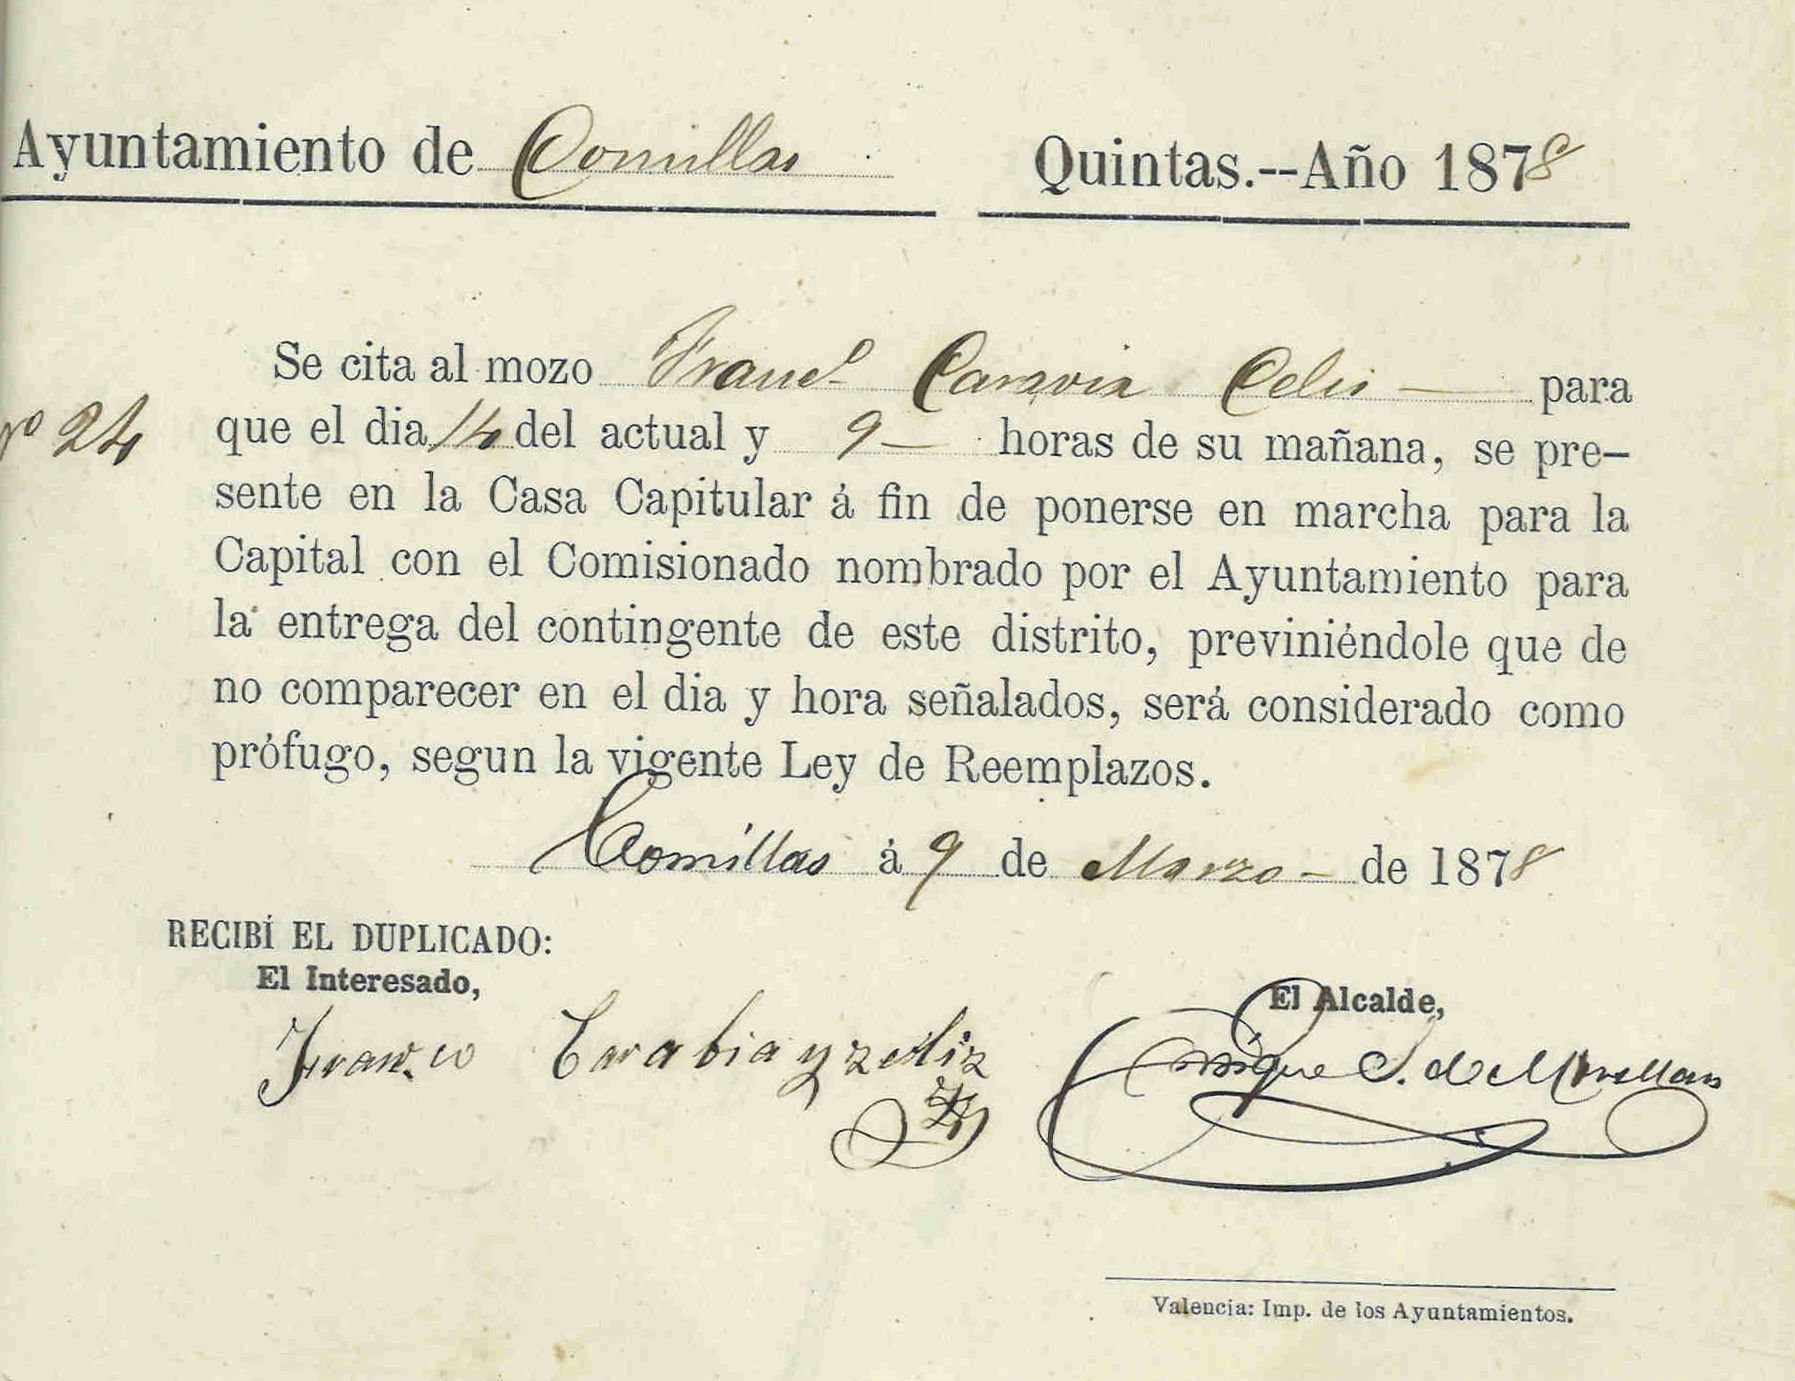 Ayuntamiento de Comillas Quintas.--Año 1878
Se cita al mozo Franco Caravia Celis — para
nº 24 que el dia 14 del actual y 9 — horas de su mañana, se pre-
sente en la Casa Capitular á fin de ponerse en marcha para la
Capital con el Comisionado nombrado por el Ayuntamiento para
la entrega del contingente de este distrito, previniéndole que de
no comparecer en el dia y hora señalados, será considerado como
prófugo, segun la vigente Ley de Reemplazos.
Comillas á 9 de Marzo — de 1878
RECIBÍ EL DUPLICADO:
El Interesado,
El Alcalde,
Carabia y zeliz
Enrique S. de Movellan
Valencia: Imp. de los Ayuntamientos.